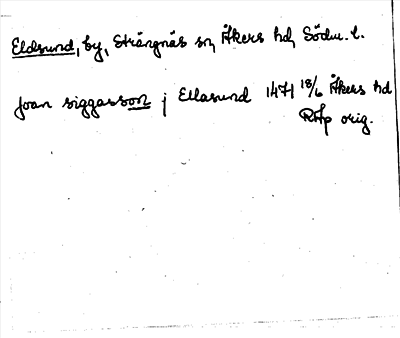 Eldsund, by, Strängnäs sn, Åkers hd, Södm. l.
Joan siggasson j Ellasund 1471 18/6 Åkers hd
RAp orig.